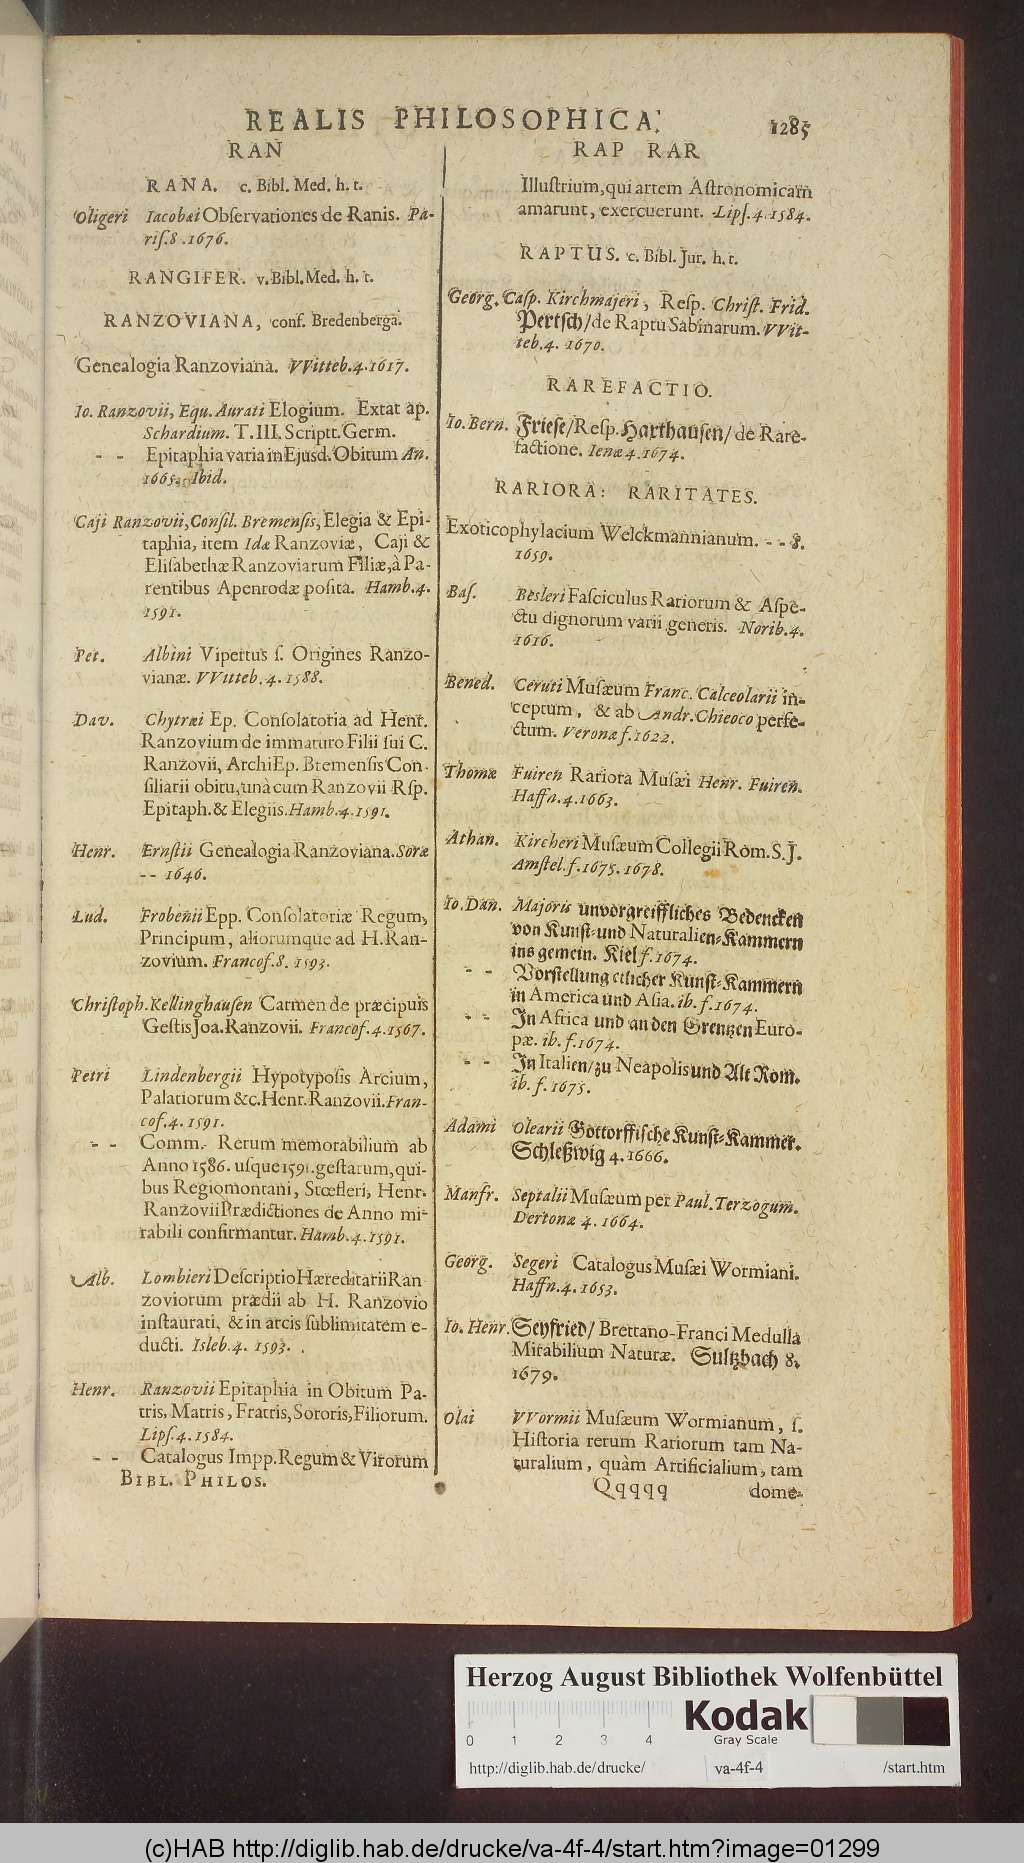 REALIS PHILOSOPHICA.
1285
RAN
RANA. c. Bibl. Med. h. t.
Oligeri Iacobæi Observationes de Ranis. Pa-
ris. 8. 1676.
RANGIFER. v. Bibl. Med. h. t.
RANZOVIANA, conf. Bredenberga.
Genealogia Ranzoviana. VVitteb. 4. 1617.
Io. Ranzovii, Equ. Aurati Elogium. Extat ap.
Schardium. T. III. Scriptt. Germ.
- - Epitaphia varia in Ejusd. Obitum An.
1665. Ibid.
Caji Ranzovii, Consil. Bremensis, Elegia & Epi-
taphia, item Idæ Ranzoviæ, Caji &
Elisabethæ Ranzoviarum Filiæ, à Pa-
rentibus Apenrodæ posita. Hamb. 4.
1591.
Pet. Albini Vipertus s. Origines Ranzo-
vianæ. VVitteb. 4. 1588.
Dav. Chytræi Ep. Consolatoria ad Henr.
Ranzovium de immaturo Filii sui C.
Ranzovii, ArchiEp. Bremensis Con-
siliarii obitu, unà cum Ranzovii Rsp.
Epitaph. & Elegiis. Hamb. 4. 1591.
Henr. Ernstii Genealogia Ranzoviana. Soræ
- - 1646.
Lud. Frobenii Epp. Consolatoriæ Regum,
Principum, aliorumque ad H. Ran-
zovium. Francof. 8. 1593.
Christoph. Kellinghausen Carmen de præcipuis
Gestis Joa. Ranzovii. Francof. 4. 1567.
Petri Lindenbergii Hypotyposis Arcium,
Palatiorum &c. Henr. Ranzovii. Fran-
cof. 4. 1591.
- - Comm. Rerum memorabilium ab
Anno 1586. usque 1591. gestarum, qui-
bus Regiomontani, Stœfleri, Henr.
Ranzovii Prædictiones de Anno mi-
rabili confirmantur. Hamb. 4. 1591.
Alb. Lombieri Descriptio Hæreditarii Ran
zoviorum prædii ab H. Ranzovio
instaurati, & in arcis sublimitatem e-
ducti. Isleb. 4. 1593.
Henr. Ranzovii Epitaphia in Obitum Pa-
tris, Matris, Fratris, Sororis, Filiorum.
Lips. 4. 1584.
- - Catalogus Impp. Regum & Virorum
BIBL. PHILOS.
RAP RAR
Illustrium, qui artem Astronomicam
amarunt, exercuerunt. Lips. 4. 1584.
RAPTUS. c. Bibl. Jur. h. t.
Georg. Casp. Kirchmajeri, Resp. Christ. Frid.
Pertsch/ de Raptu Sabinarum. VVit-
teb. 4. 1670.
RAREFACTIO.
Io. Bern. Friese/ Resp. Harthausen/ de Rare-
factione. Ienæ 4. 1674.
RARIORA: RARITATES.
Exoticophylacium Welckmannianum. - - 8.
1659.
Bas. Besleri Fasciculus Rariorum & Aspe-
ctu dignorum varii generis. Norib. 4.
1616.
Bened. Ceruti Musæum Franc. Calceolarii in-
ceptum, & ab Andr. Chieoco perfe-
ctum. Veronæ f. 1622.
Thomæ Fuiren Rariora Musæi Henr. Fuiren.
Haffn. 4. 1663.
Athan. Kircheri Musæum Collegii Rom. S. J.
Amstel. f. 1675. 1678.
Io. Dan. Majoris unvorgreiffliches Bedencken
von Kunst- und Naturalien-Kammern
ins gemein. Kiel f. 1674.
- - Vorstellung etlicher Kunst-Kammern
in America und Asia. ib. f. 1674.
- - In Africa und an den Grentzen Euro-
pæ. ib. f. 1674.
- - In Italien/ zu Neapolis und Alt Rom.
ib. f. 1675.
Adami Olearii Gottorffische Kunst-Kammer.
Schleßwig 4. 1666.
Manfr. Septalii Musæum per Paul. Terzogum.
Dertonæ 4. 1664.
Georg. Segeri Catalogus Musæi Wormiani.
Haffn. 4. 1653.
Io. Henr. Seyfried/ Brettano-Franci Medulla
Mirabilium Naturæ. Sultzbach 8.
1679.
Olai VVormii Musæum Wormianum, s.
Historia rerum Rariorum tam Na-
turalium, quàm Artificialium, tam
Qqqqq dome-
Herzog August Bibliothek Wolfenbüttel
0 1 2 3 4
Kodak
Gray Scale
http://diglib.hab.de/drucke/ va-4f-4 /start.htm
(c)HAB http://diglib.hab.de/drucke/va-4f-4/start.htm?image=01299